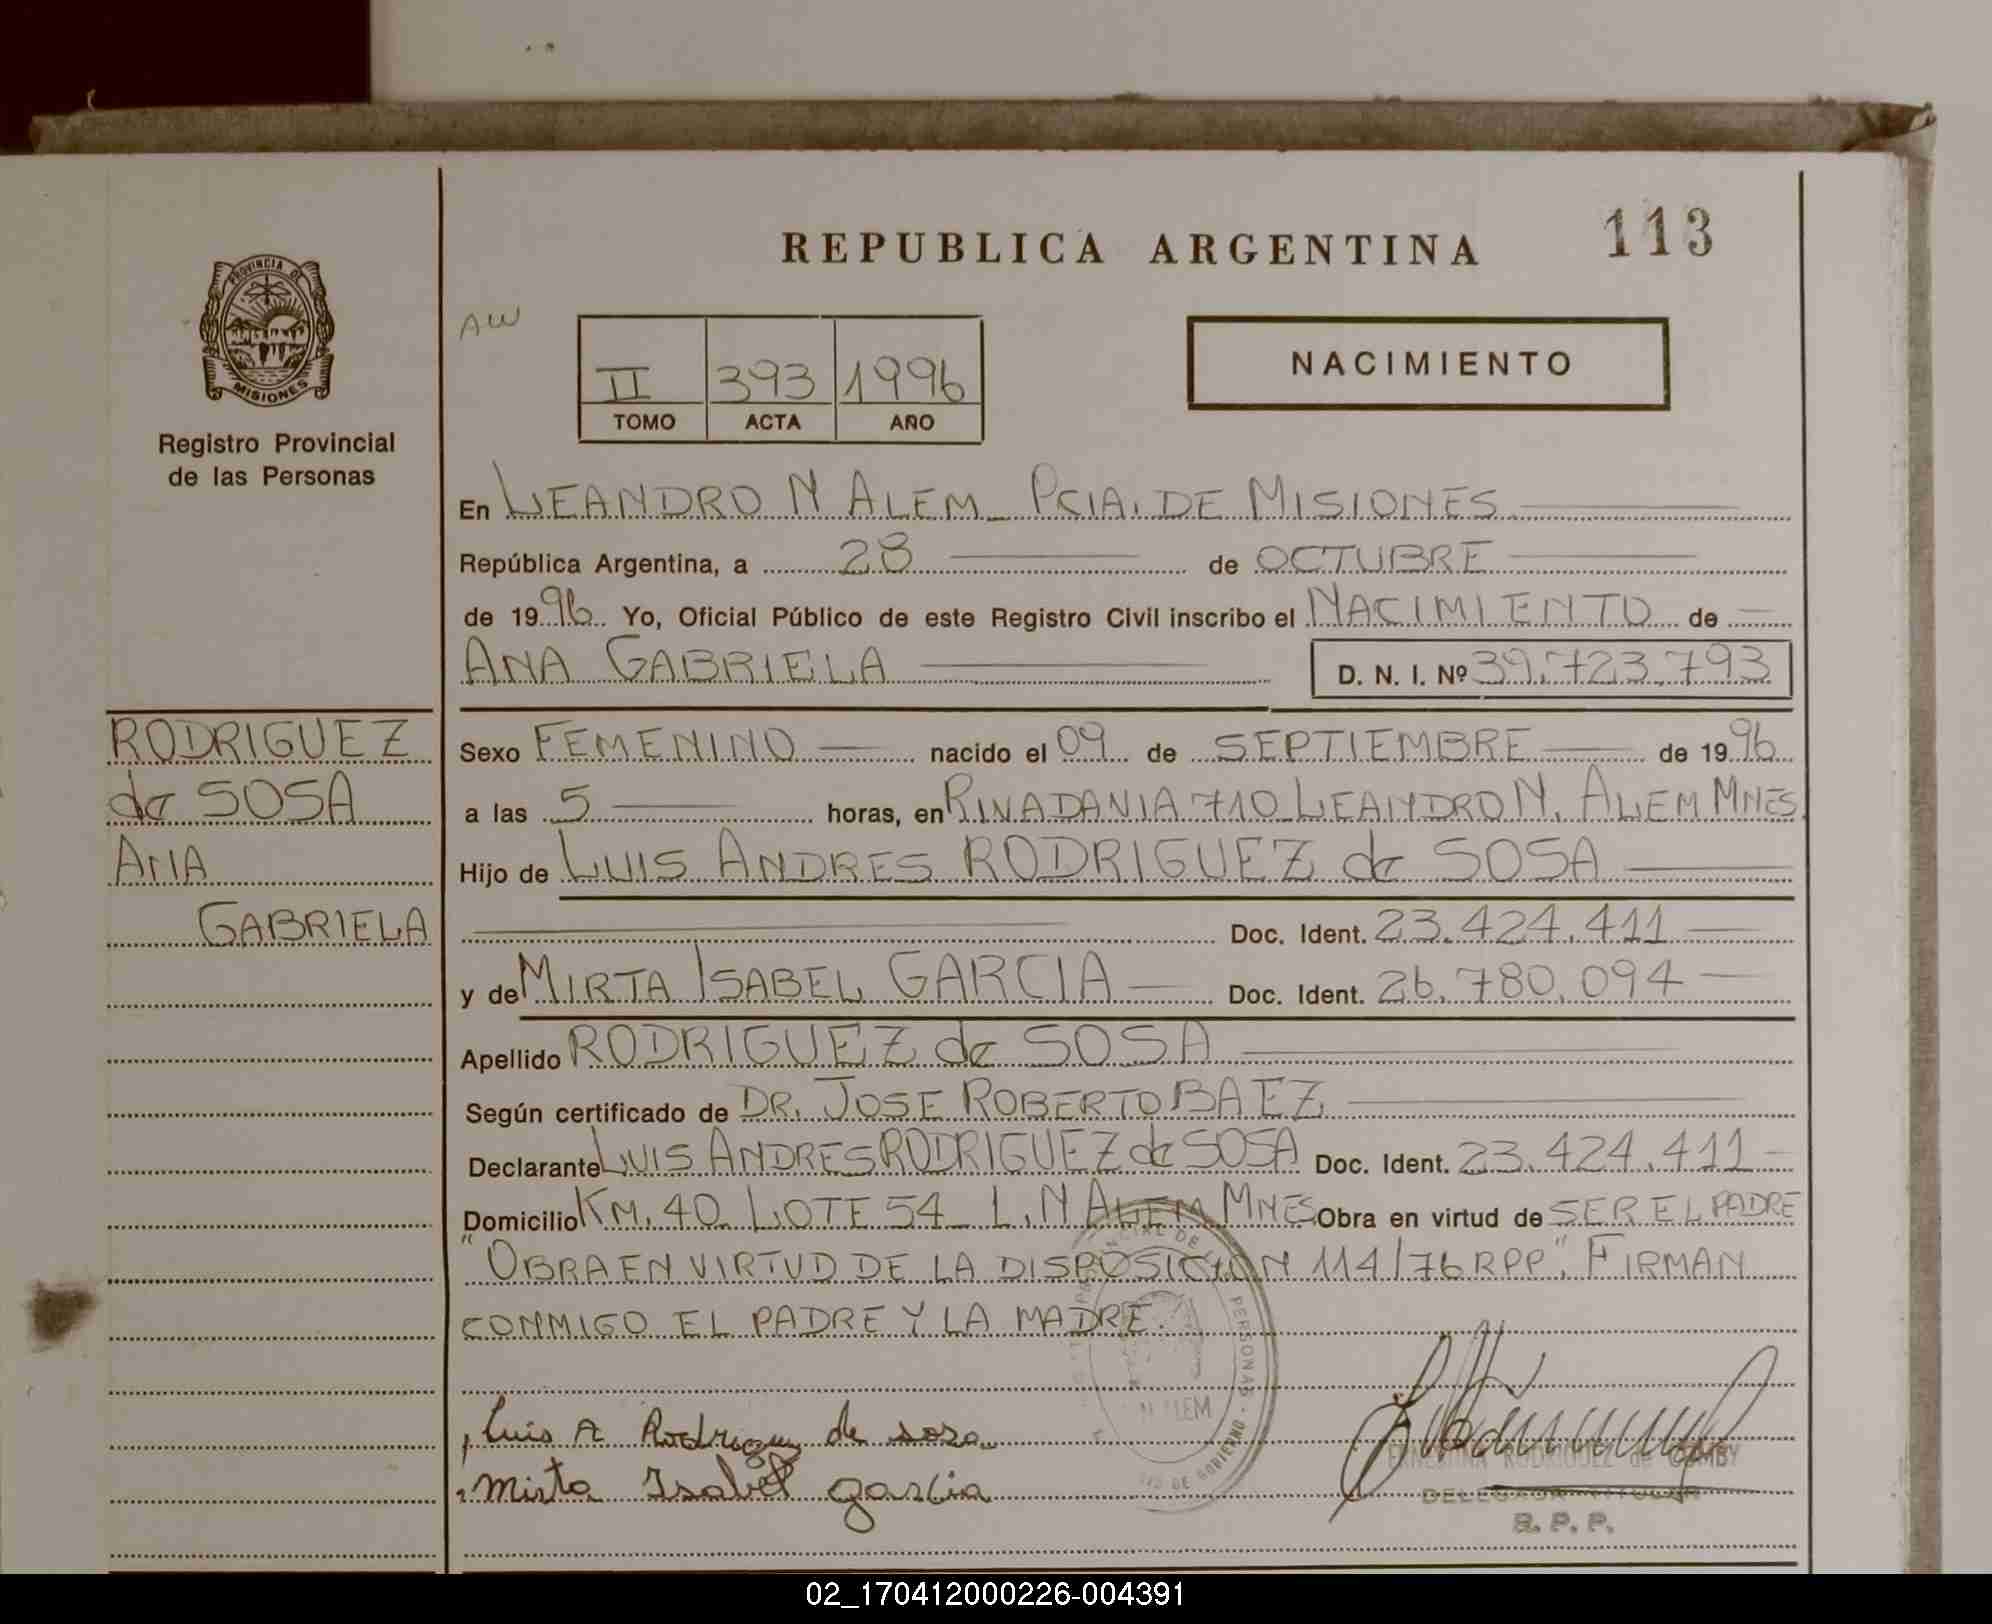 REPUBLICA ARGENTINA
113
PROVINCIA DE
MISIONES
Registro Provincial
de las Personas
AW
II 393 1996
TOMO ACTA AÑO
NACIMIENTO
En LEANDRO N ALEM_ PCIA. DE MISIONES
República Argentina, a 28 de OCTUBRE
de 1996 Yo, Oficial Público de este Registro Civil inscribo el NACIMIENTO de
ANA GABRIELA D. N. I. Nº 39.723.793
RODRIGUEZ
de SOSA
ANA
GABRIELA
Sexo FEMENINO nacido el 09 de SEPTIEMBRE de 1996
a las 5 horas, en RIVADAVIA 710_LEANDRO N. ALEM MNES
Hijo de LUIS ANDRES RODRIGUEZ de SOSA
Doc. Ident. 23.424.411
y de MIRTA ISABEL GARCIA Doc. Ident. 26.780.094
Apellido RODRIGUEZ de SOSA
Según certificado de DR. JOSE ROBERTO BAEZ
Declarante LUIS ANDRES RODRIGUEZ de SOSA Doc. Ident. 23.424.411
Domicilio KM. 40 LOTE 54_ L.N ALEM MNES Obra en virtud de SER EL PADRE
"OBRA EN VIRTUD DE LA DISPOSICION 114/76 RPP". FIRMAN
CONMIGO EL PADRE Y LA MADRE.
PERSONAS
N ALEM
DE GOBIERNO
Luis A Rodriguez de sosa
Mirta Isabel garcia
ERNESTINA RODRIGUEZ de
DELEGADA TITULAR
R. P. P.
02_170412000226-004391